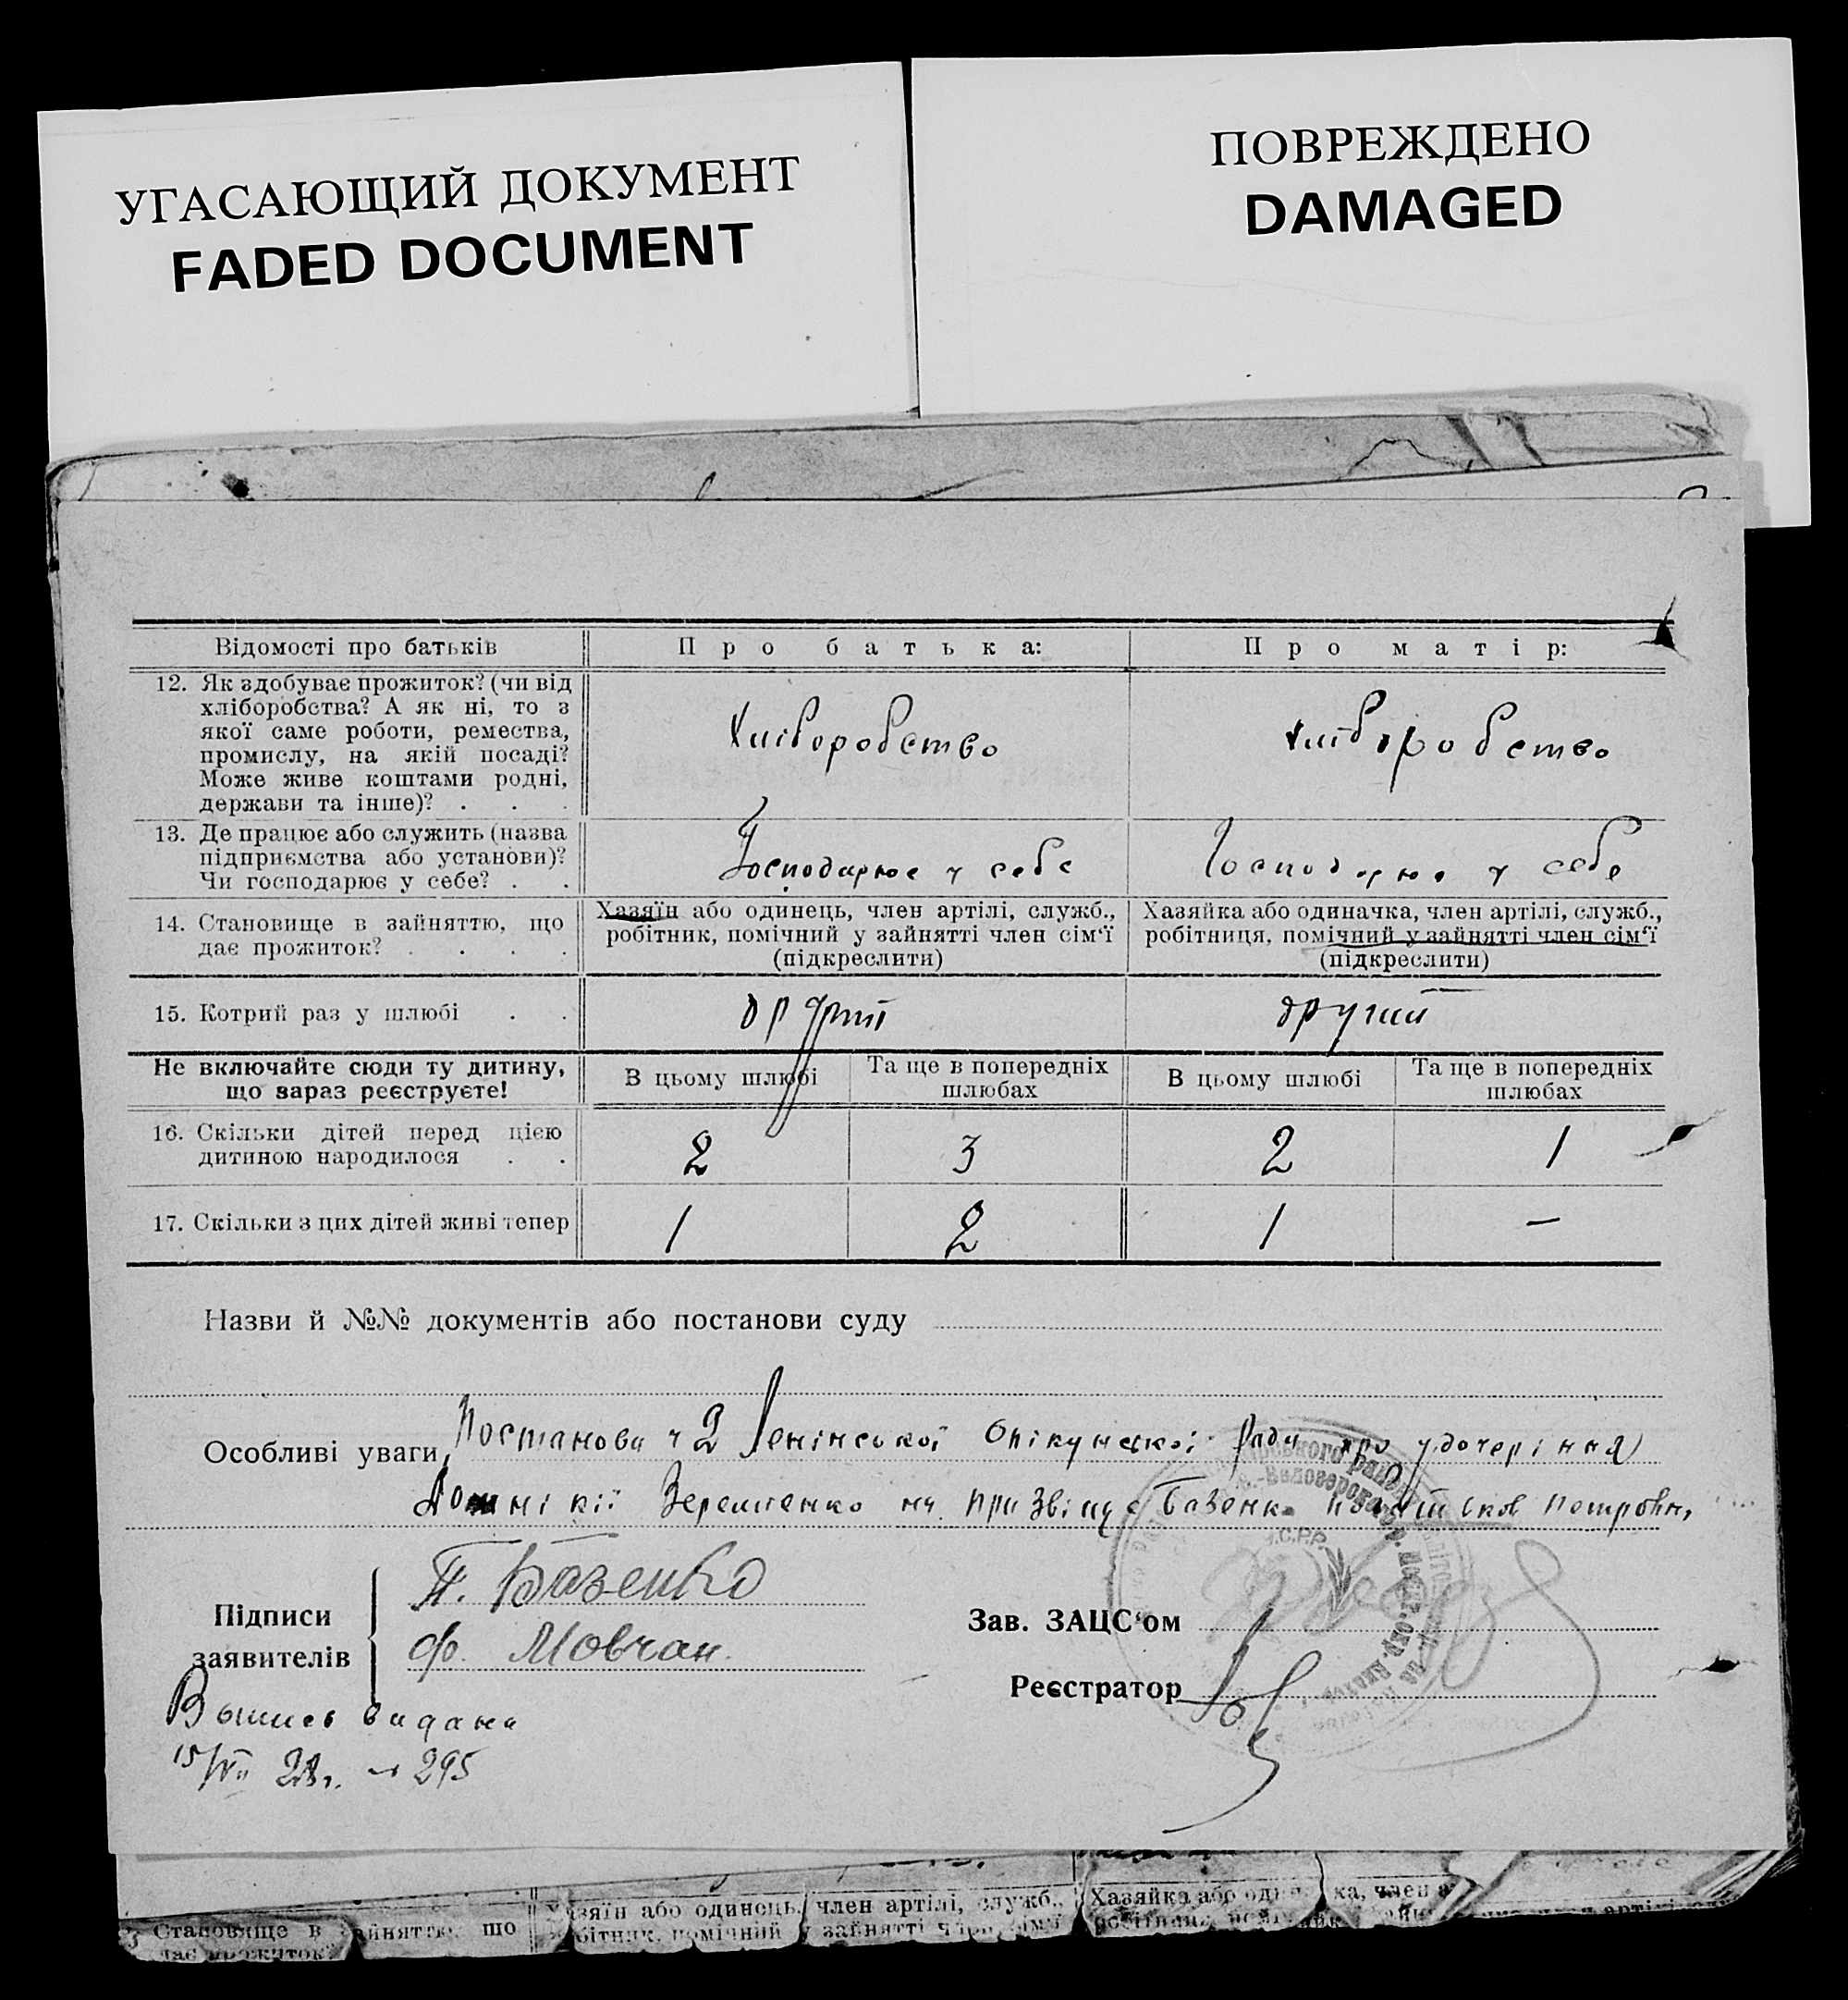 УГАСАЮЩИЙ ДОКУМЕНТ
FADED DOCUMENT
ПОВРЕЖДЕНО
DAMAGED
Відомості про батьків
Про батька:
Про матір:
12. Як здобуває прожиток? (чи від
хліборобства? А як ні, то з
якої саме роботи, ремества,
промислу, на якій посаді?
Може живе коштами родні,
держави та інше)? . . .
Хліборобство
Хліборобство
13. Де працює або служить (назва
підприємства або установи)?
Чи господарює у себе? . .
Господарює у себе
Господарює у себе
14. Становище в зайняттю, що
дає прожиток? . . . .
Хазяїн або одинець, член артілі, служб.,
робітник, помічний у зайнятті член сім‘ї
(підкреслити)
Хазяйка або одиначка, член артілі, служб.,
робітниця, помічний у зайнятті член сім‘ї
(підкреслити)
15. Котрий раз у шлюбі . .
другий
другий
Не включайте сюди ту дитину,
що зараз реєструєте!
В цьому шлюбі
Та ще в попередніх
шлюбах
В цьому шлюбі
Та ще в попередніх
шлюбах
16. Скільки дітей перед цією
дитиною народилося . .
2
3
2
1
17. Скільки з цих дітей живі тепер
1
2
1
—
Назви й №№ документів або постанови суду
Особливі уваги, Постанова ч 2 Ленінської Опікунської Ради про удочеріння
на призвіще Базенко
Підписи
заявителів
П. Базенко
Ф. Мовчан.
Зав. ЗАЦС‘ом
Реєстратор
С.Р.Р.
видана
15/VII 28г. 295
Становище в зайняттю, що
дає прожиток?
Хазяїн або одинець, член артілі, служб.,
робітник, помічний у зайнятті
Хазяйка або